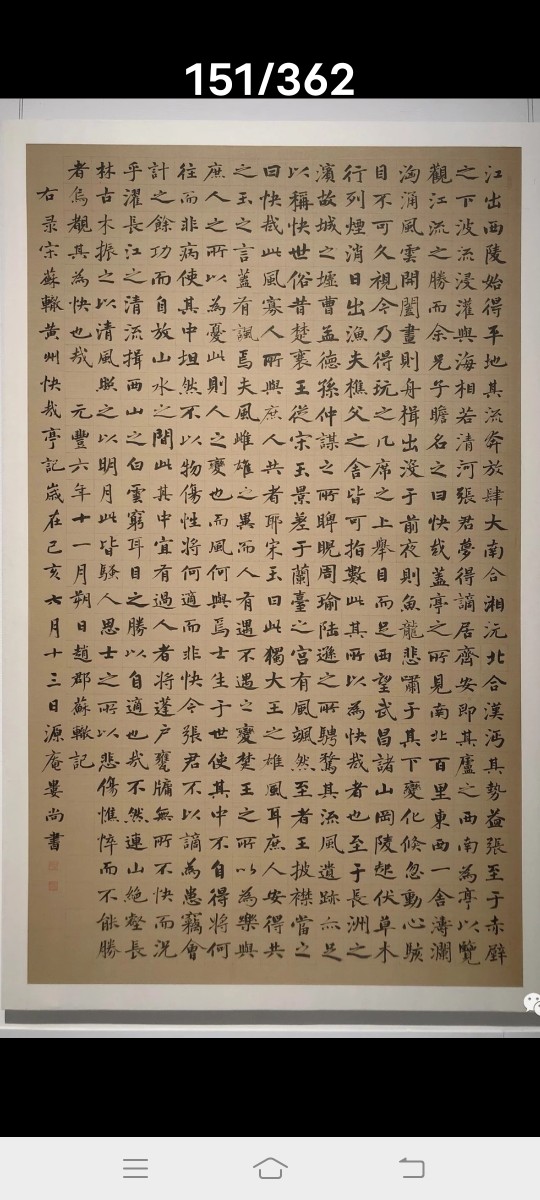 151/362
江出西陵始得平地其流奔放肆大南合湘沅北合漢沔其勢益張至于赤壁
之下波流浸灌與海相若清河張君夢得謫居齊安即其廬之西南為亭以覽
觀江流之勝而余兄子瞻名之曰快哉蓋亭之所見南北百里東西一舍濤瀾
洶涌風雲開闔晝則舟楫出沒于前夜則魚龍悲嘯于其下變化倏忽動心駭
目不可久視今乃得玩之几席之上舉目而足西望武昌諸山岡陵起伏草木
行列煙消日出漁夫樵父之舍皆可指數此其所以為快哉者也至于長洲之
濱故城之墟曹孟德孫仲謀之所睥睨周瑜陸遜之所騁騖其流風遺跡亦足
以稱快世俗昔楚襄王從宋玉景差于蘭臺之宮有風颯然至者王披襟當之
曰快哉此風寡人所與庶人共者耶宋玉曰此獨大王之雄風耳庶人安得共
之玉之言蓋有諷焉夫風雌雄之異而人有遇不遇之變楚王之所以為樂與
庶人之所以為憂此則人之變也而風何與焉士生于世使其中不自得將何
往而非病使其中坦然不以物傷性將何適而非快今張君不以謫為患竊會
計之餘功而自放山水之間此其中宜有過人者將蓬戶甕牖無所不快而況
乎濯長江之清流揖西山之白雲窮耳目之勝以自適也哉不然連山絕壑長
林古木振之以清風照之以明月此皆騷人思士之所以悲傷憔悴而不能勝
者烏覩其為快也哉 元豐六年十一月朔日趙郡蘇轍記
右录宋蘇轍黃州快哉亭記歲在己亥六月十三日源庵婁尚書